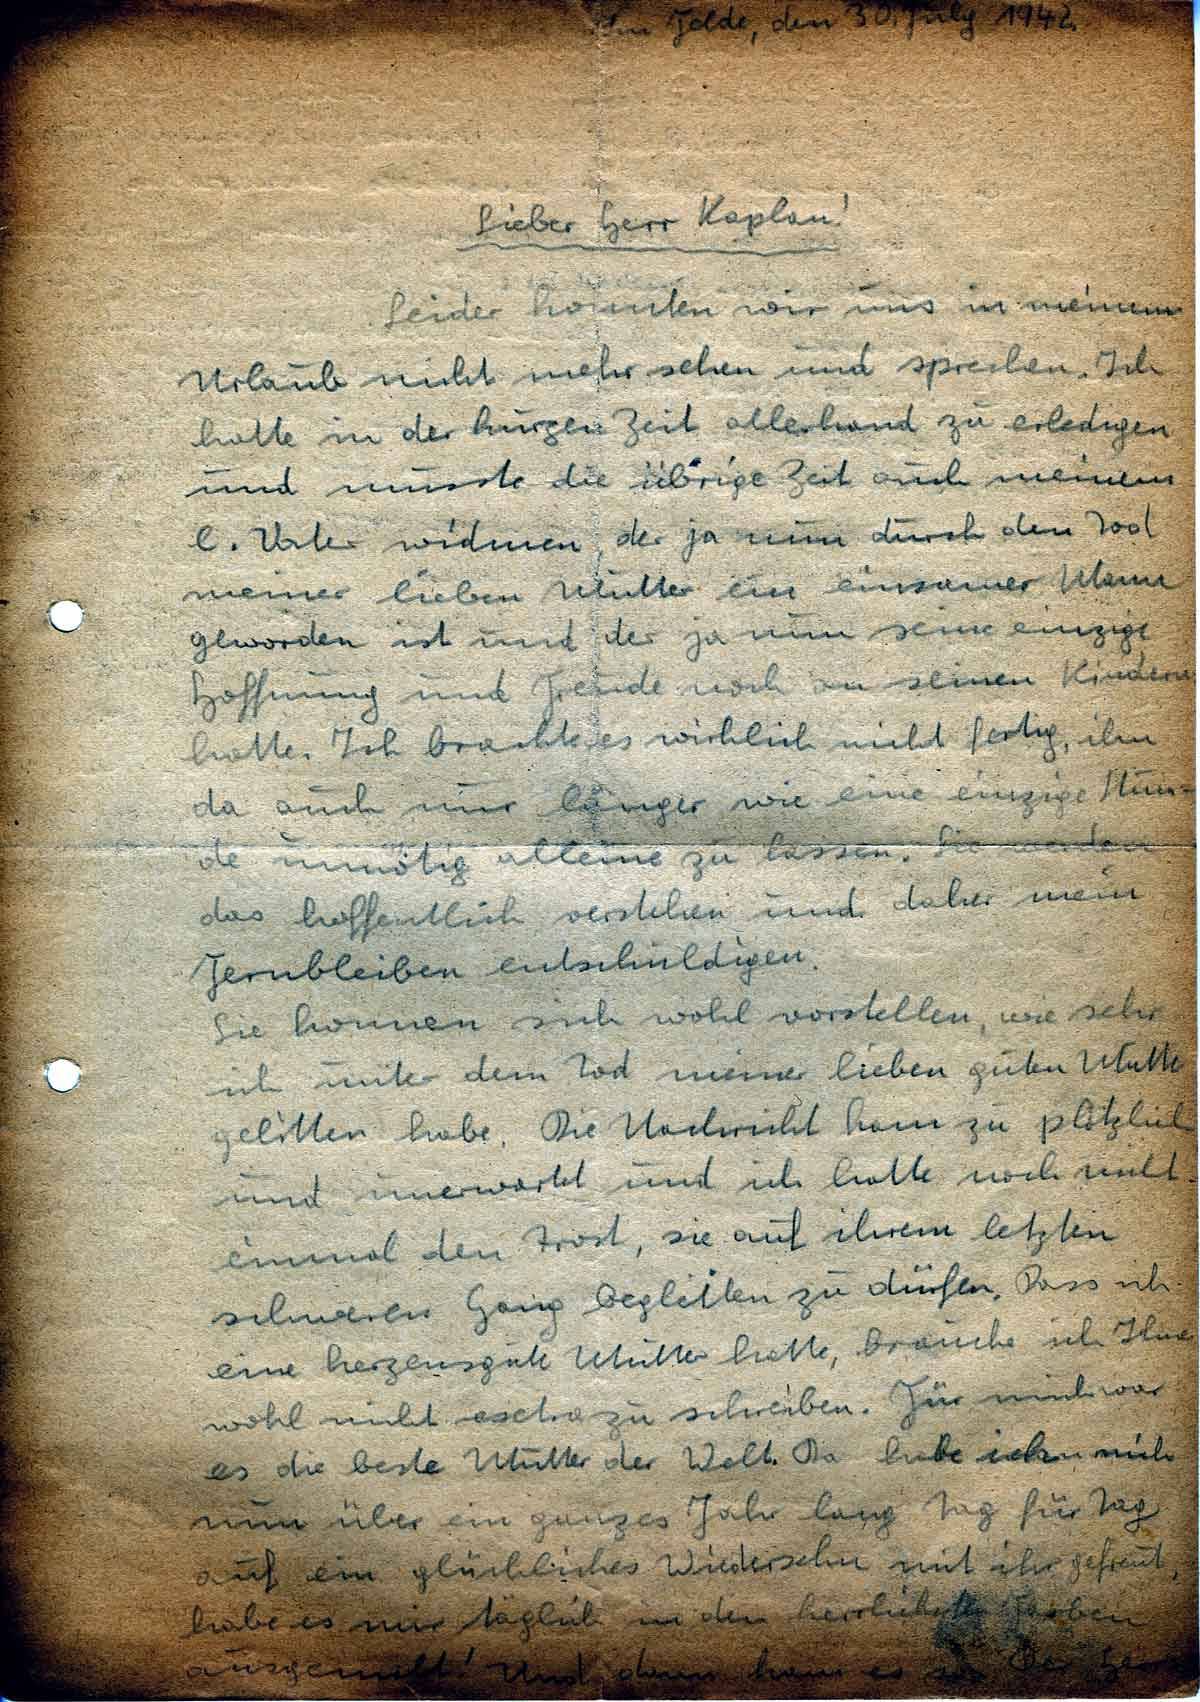 Im Felde, den 30. July 1942.
Lieber Herr Kaplan!
Leider konnten wir uns in meinem
Urlaub nicht mehr sehen und sprechen. Ich
hatte in der kurzen Zeit allerhand zu erledigen
und musste die übrige Zeit auch meinem
l. Vater widmen, der ja nun durch den Tod
meiner lieben Mutter ein einsamer Mann
geworden ist und der ja nun seine einzige
Hoffnung und Freude noch an seinen Kindern
hatte. Ich brachte es wirklich nicht fertig, ihn
da auch nur länger wie eine einzige Stun-
de unnötig alleine zu lassen. Sie werden
das hoffentlich verstehen und daher mein
Fernbleiben entschuldigen.
Sie konnen sich wohl vorstellen, wie sehr
ich unter dem Tod meiner lieben guten Mutter
gelitten habe. Die Nachricht kam zu plötzlich
und unerwartet und ich hatte noch nicht
einmal den Trost, sie auf ihrem letzten
schweren Gang begleiten zu dürfen. Dass ich
eine herzensgute Mutter hatte, brauche ich Ihnen
wohl nicht extra zu schreiben. Für mich war
es die beste Mutter der Welt. Da habe ich mich
nun über ein ganzes Jahr lang Tag für Tag
auf ein glückliches Wiedersehn mit ihr gefreut,
habe es mir täglich in den herrlichsten Farben
ausgemalt! Und dann kam es so. Der